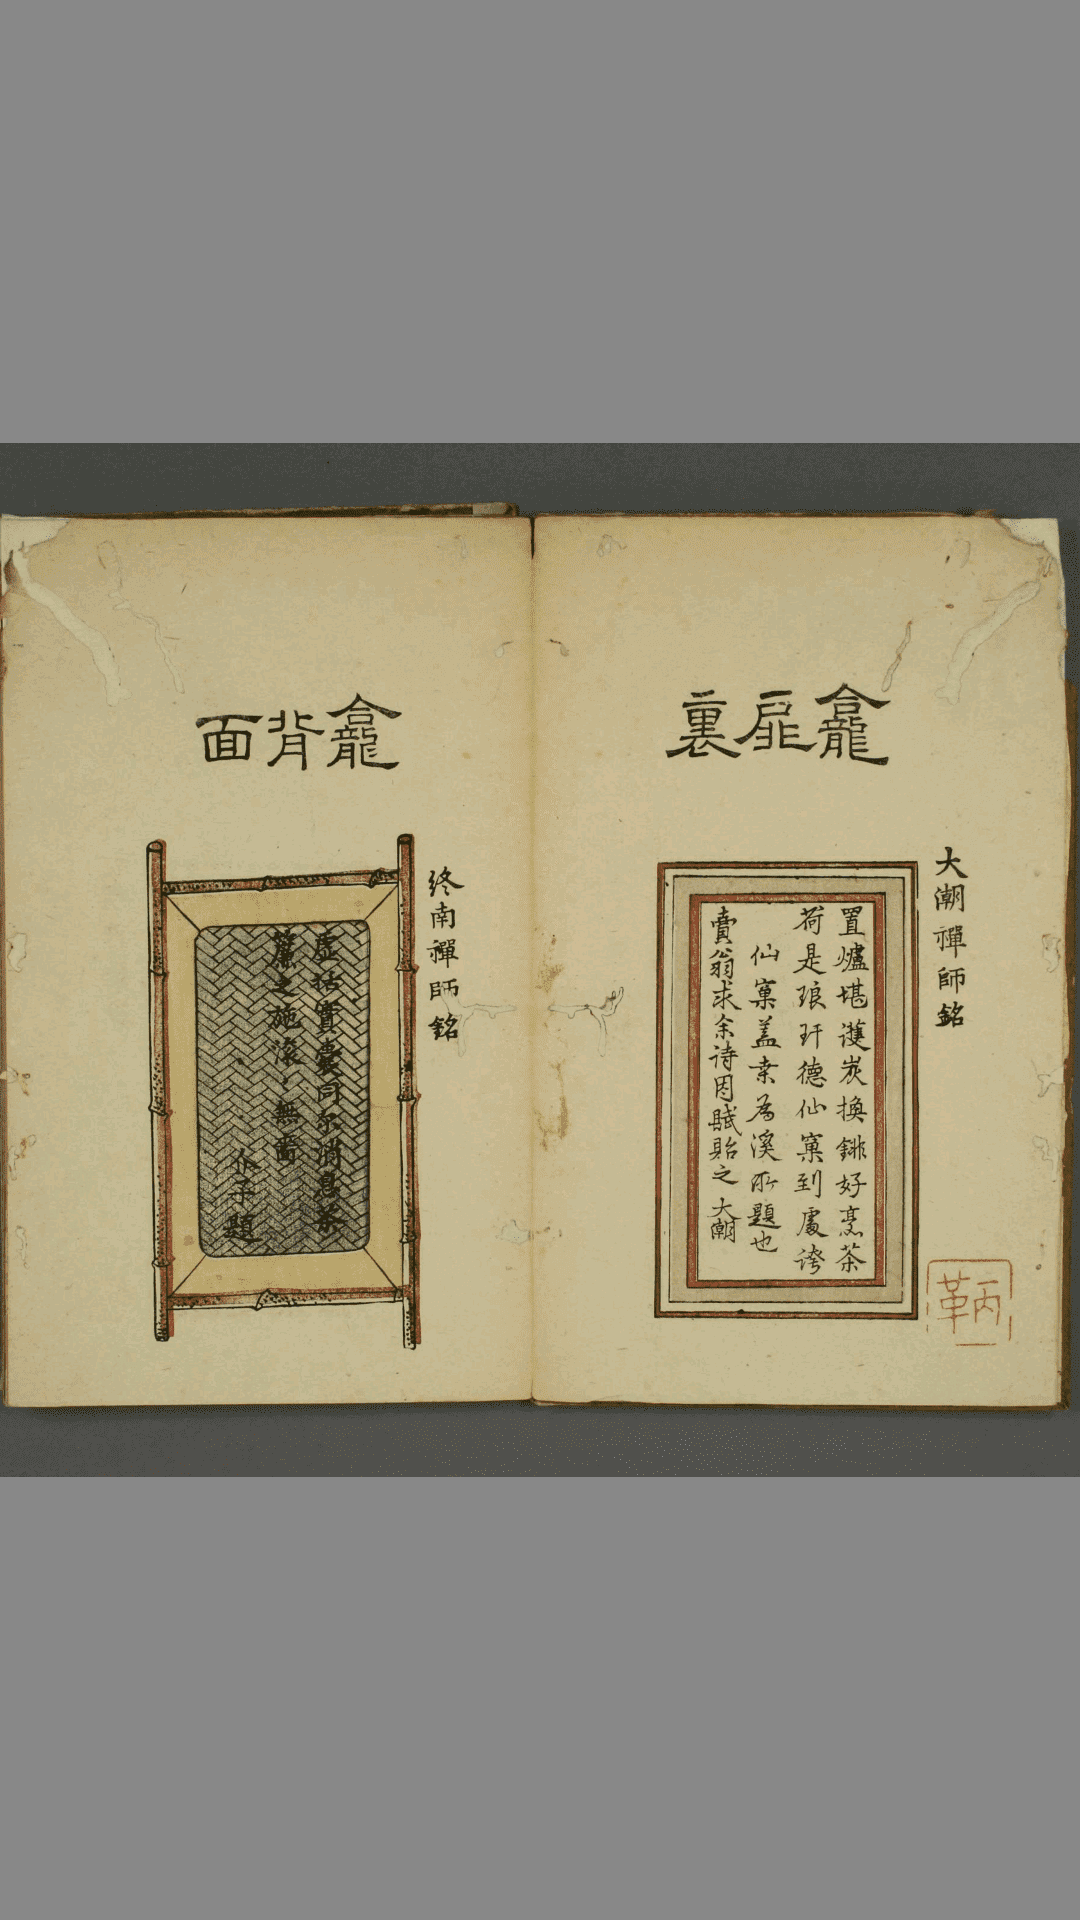 龕扉裏
大潮禪師銘
置爐堪護炭換銚好烹茶
荷是琅玕德仙窠到處誇
仙窠蓋未為溪所題也
賣翁求余詩因賦貽之 大潮
龕背面
終南禪師銘
虛括實囊同尔消息茶
簾之施滾〻無
介子題